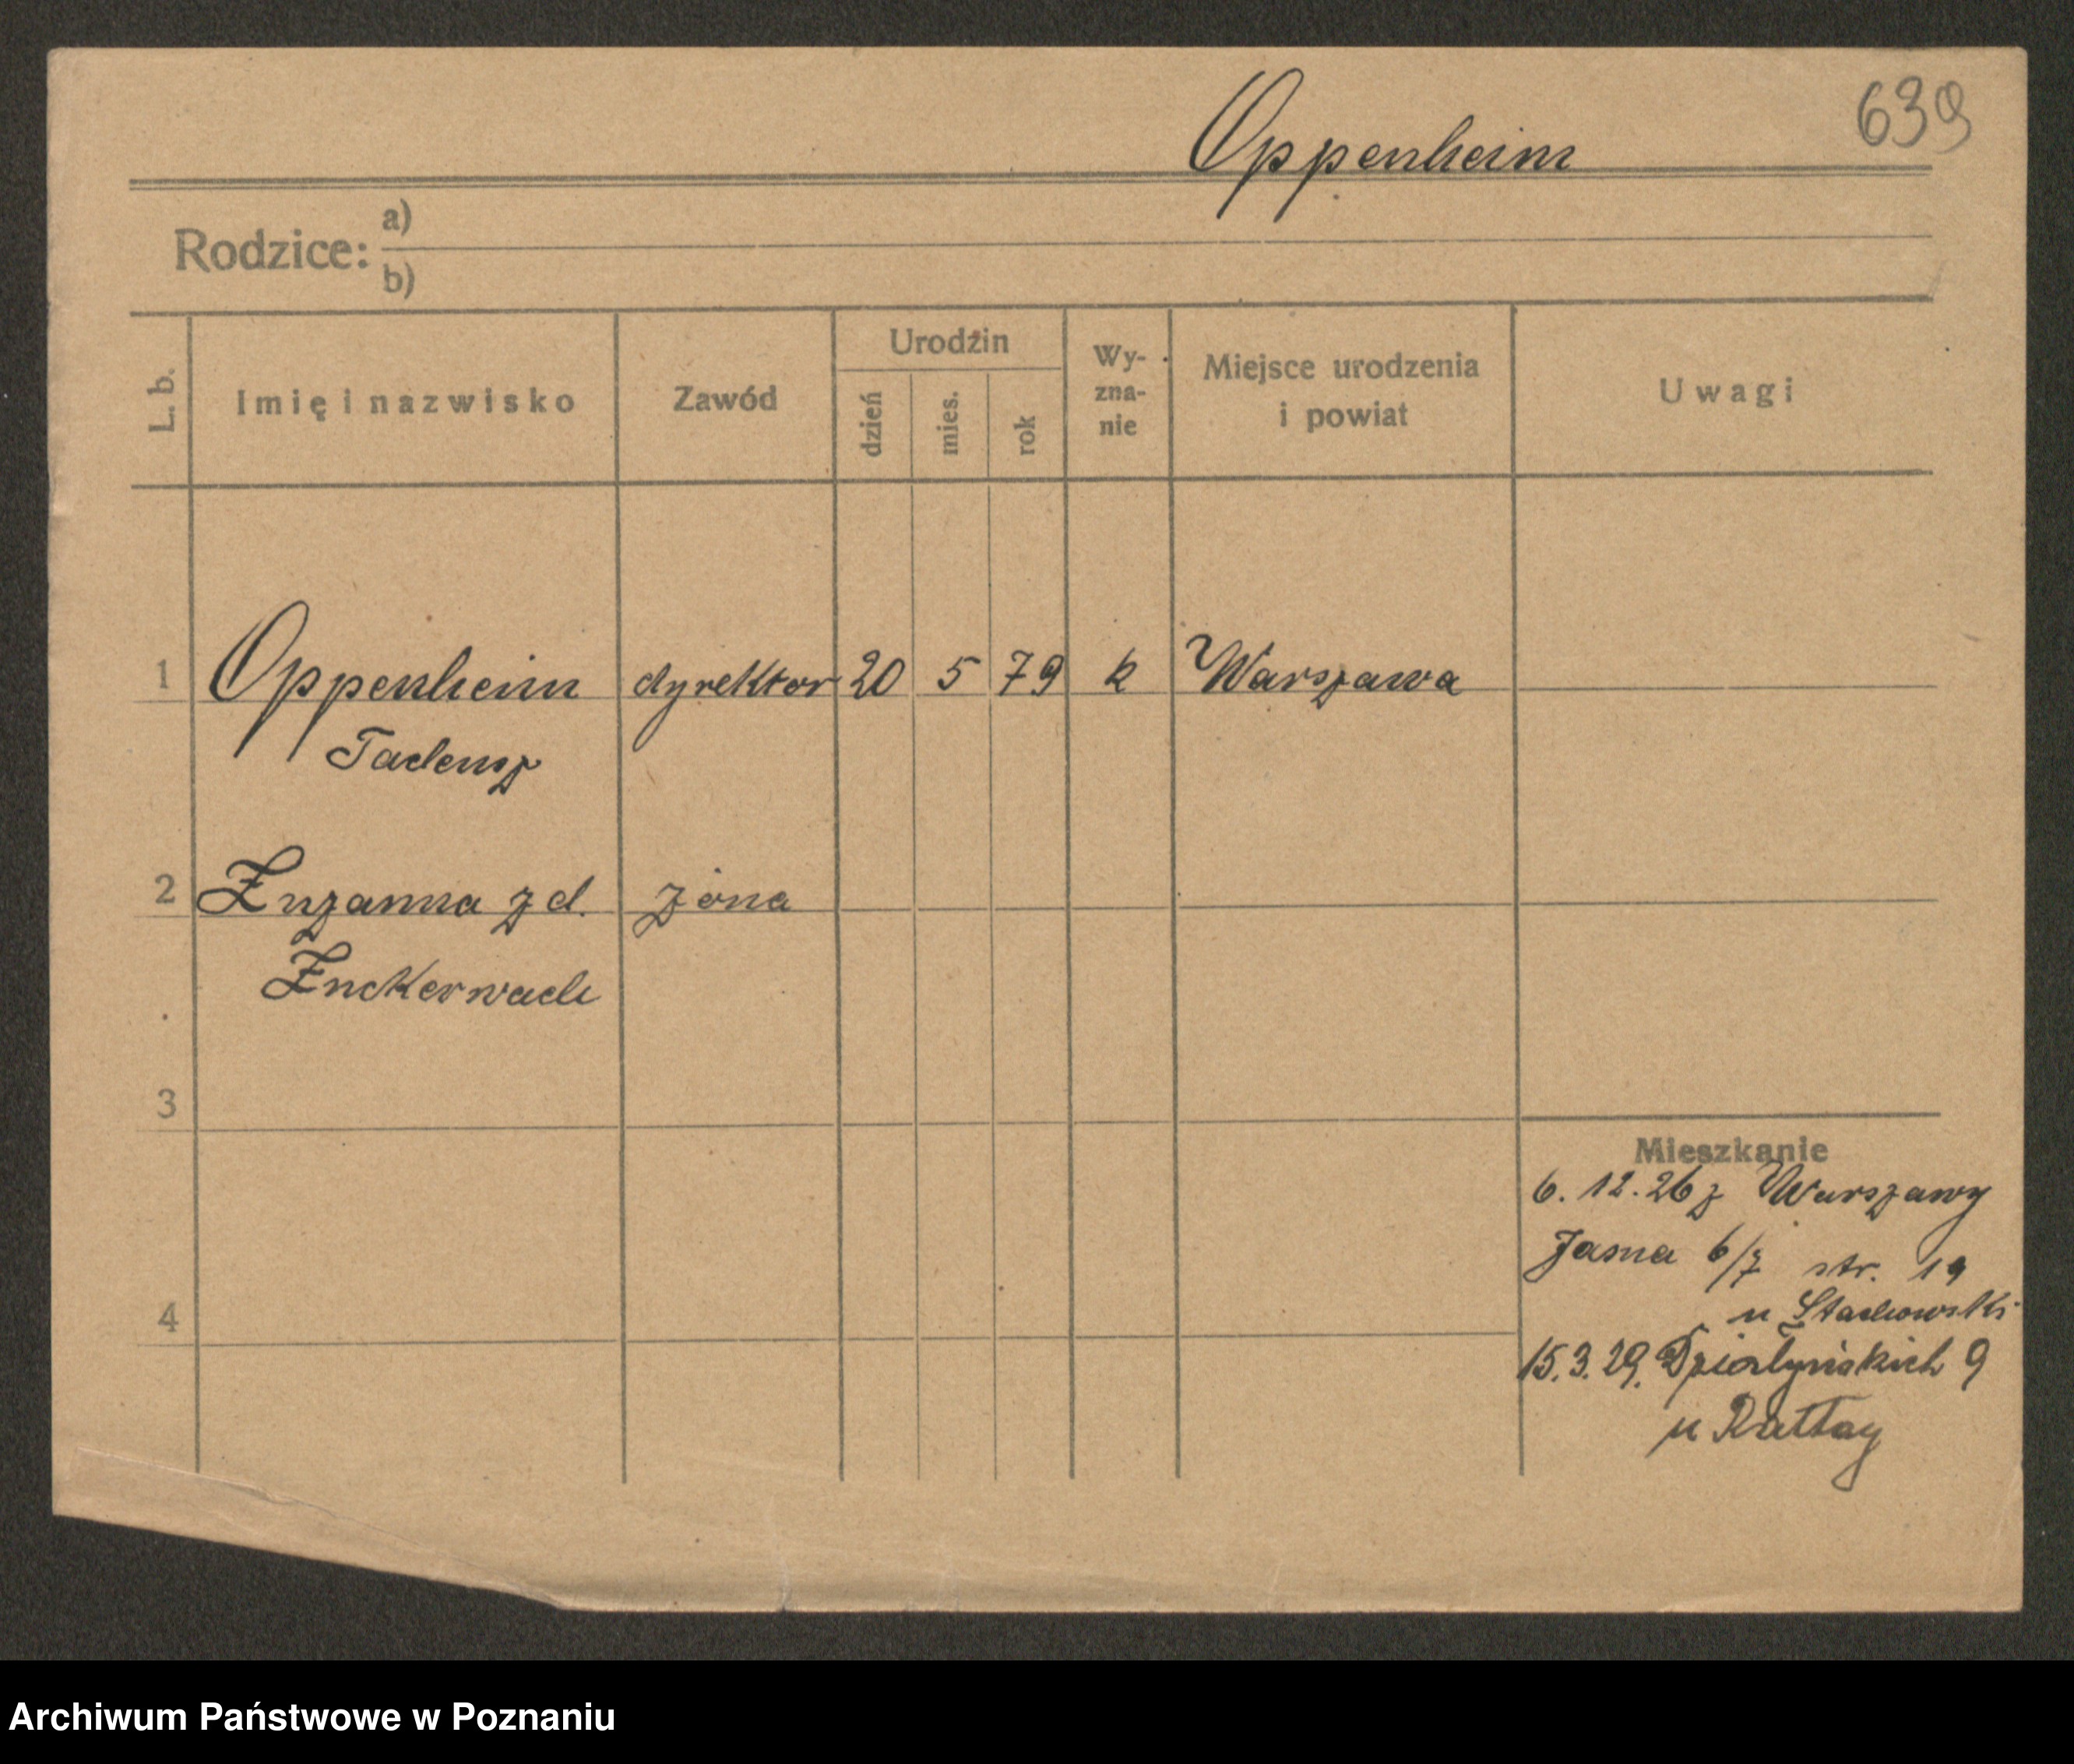 639
Oppenheim
Rodzice: a)
b)
L. b.
Imię i nazwisko
Zawód
Urodzin
dzień
mies.
rok
Wy-
zna-
nie
Miejsce urodzenia
i powiat
Uwagi
1 Oppenheim dyrektor 20 5 79 k Warszawa
Tadeusz
2 Zuzanna z d. żona
Zuckerwach
3
4
Mieszkanie
6. 12. 26 z Warszawy
Jasna 6/7 str. 19
u Stachowski
15. 3. 29. Działyńskich 9
u Rattay
Archiwum Państwowe w Poznaniu